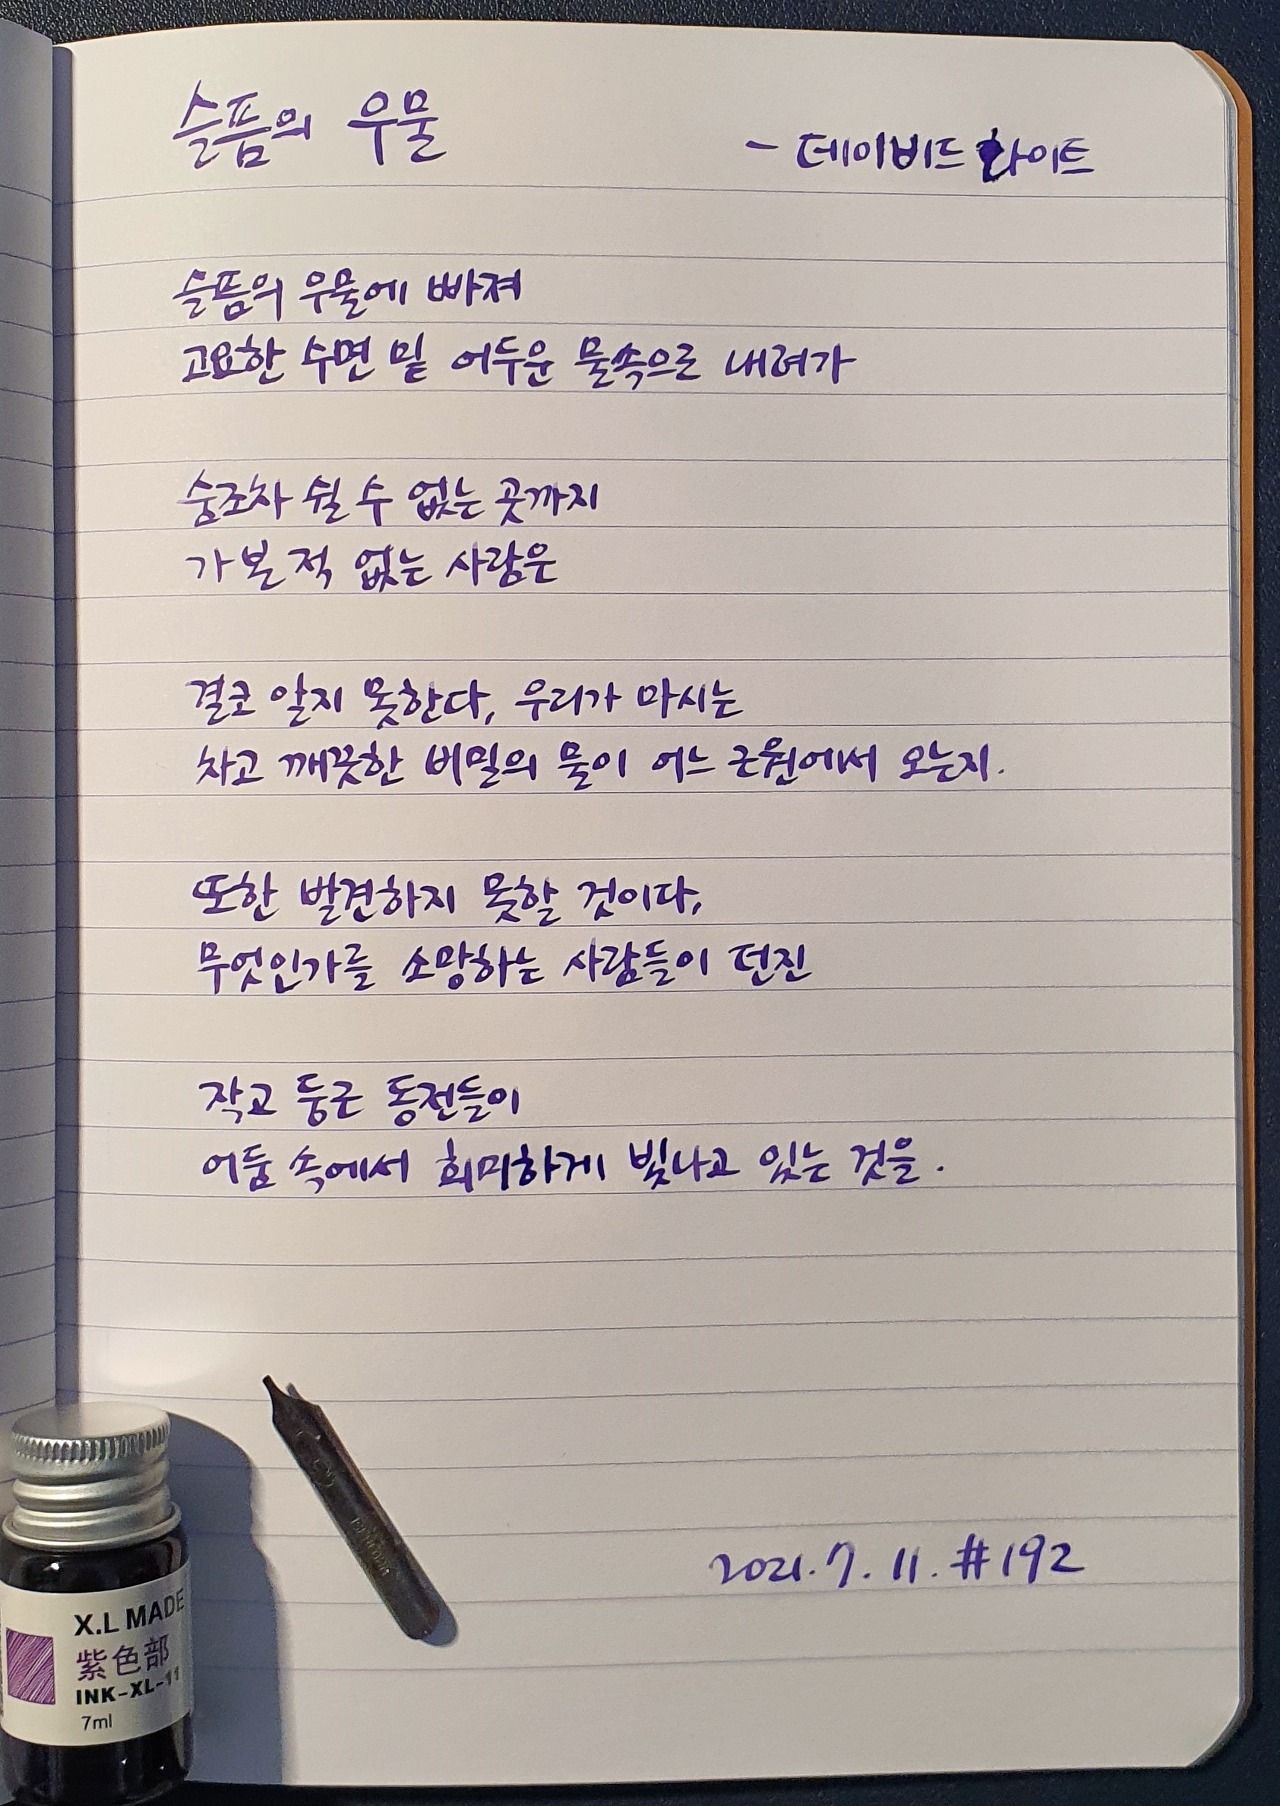 슬픔의 우물
- 데이비드 화이트
슬픔의 우물에 빠져
고요한 수면 밑 어두운 물속으로 내려가
숨조차 쉴 수 없는 곳까지
가본 적 없는 사람은
결코 알지 못한다, 우리가 마시는
차고 깨끗한 비밀의 물이 어느 근원에서 오는지.
또한 발견하지 못할 것이다,
무엇인가를 소망하는 사람들이 던진
작고 둥근 동전들이
어둠 속에서 희미하게 빛나고 있는 것을.
2021. 7. 11. #192
X.L MADE
紫色部
INK-XL-11
7ml